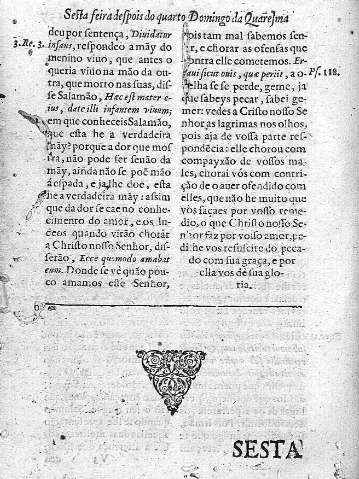 Sesta feira despois do quarto Domingo da Quaresma
deu por sentença, Diuidatur
3. Re. 3. infans, respondeo a mãy do
menino viuo, que antes o
queria viuo na mão da ou-
tra, que morto nas suas, dis-
se Salamão, Hec est mater e-
ius, date illi infantem viuum;
em que conheceis Salamão,
que esta he a verdadeira
mãy? porque a dor que mos
tra, não pode ser senão da
mãy, ainda não se poẽ mão
á espada, e ja lhe doe, esta
he a verdadeira mãy: assim
que da dor se cae no conhe-
cimento do amor, e os Iu-
deos quando virão chorar
a Christo nosso Senhor, dis-
serão, Ecce quomodo amabat
eum. Donde se vè quão pou-
co amamos esse Senhor,
pois tam mal sabemos sen-
tir, e chorar as ofensas que
contra elle cometemos. Er-
raui sicut ouis, que periit, a o- Ps. 118.
uelha se se perde, geme, ja
que sabeys pecar, sabei ge-
mer: vedes a Cristo nosso Se
nhor as lagrimas nos olhos,
pois aja de vossa parte res-
pondẽcia: elle chorou com
compayxão de vossos ma-
les, chorai vós com contri-
ção de o auer ofendido com
elles, que não he muito que
vós façaes por vosso reme-
dio, o que Christo nosso Se-
nhor faz por vosso amor, pe-
di lhe vos resuscite do peca-
do com sua graça, e por
ella vos dè sua glo-
ria.
SESTA